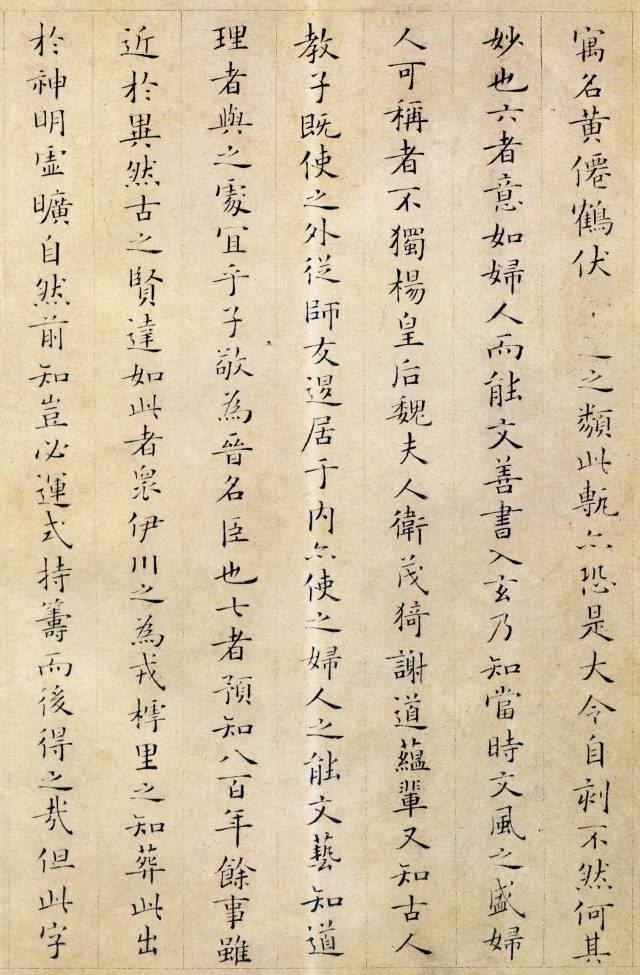 寓名黄僊鶴伏之之類此甎亦恐是大令自刻不然何其
妙也六者意如婦人而能文善書入玄乃知當時文風之盛婦
人可稱者不獨楊皇后魏夫人衛茂猗謝道蘊輩又知古人
教子既使之外從師友退居于内亦使之婦人之能文藝知道
理者與之處宜乎子敬為晉名臣也七者預知八百年餘事雖
近於異然古之賢達如此者衆伊川之為戎樗里之知葬此出
於神明虛曠自然前知豈必運式持籌而後得之哉但此字